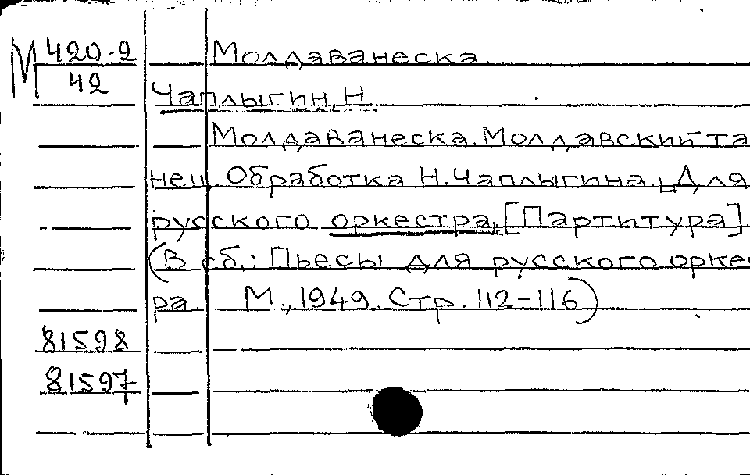 М 420-2 Молдаванеска
42
Чаплыгин, Н.
Молдаванеска. Молдавский та
нец. Обработка Н. Чаплыгина. Для
русского оркестра, [Партитура]
(В сб.: Пьесы для русского орке
ра М., 1949. Стр. 112-116)
81598
81597